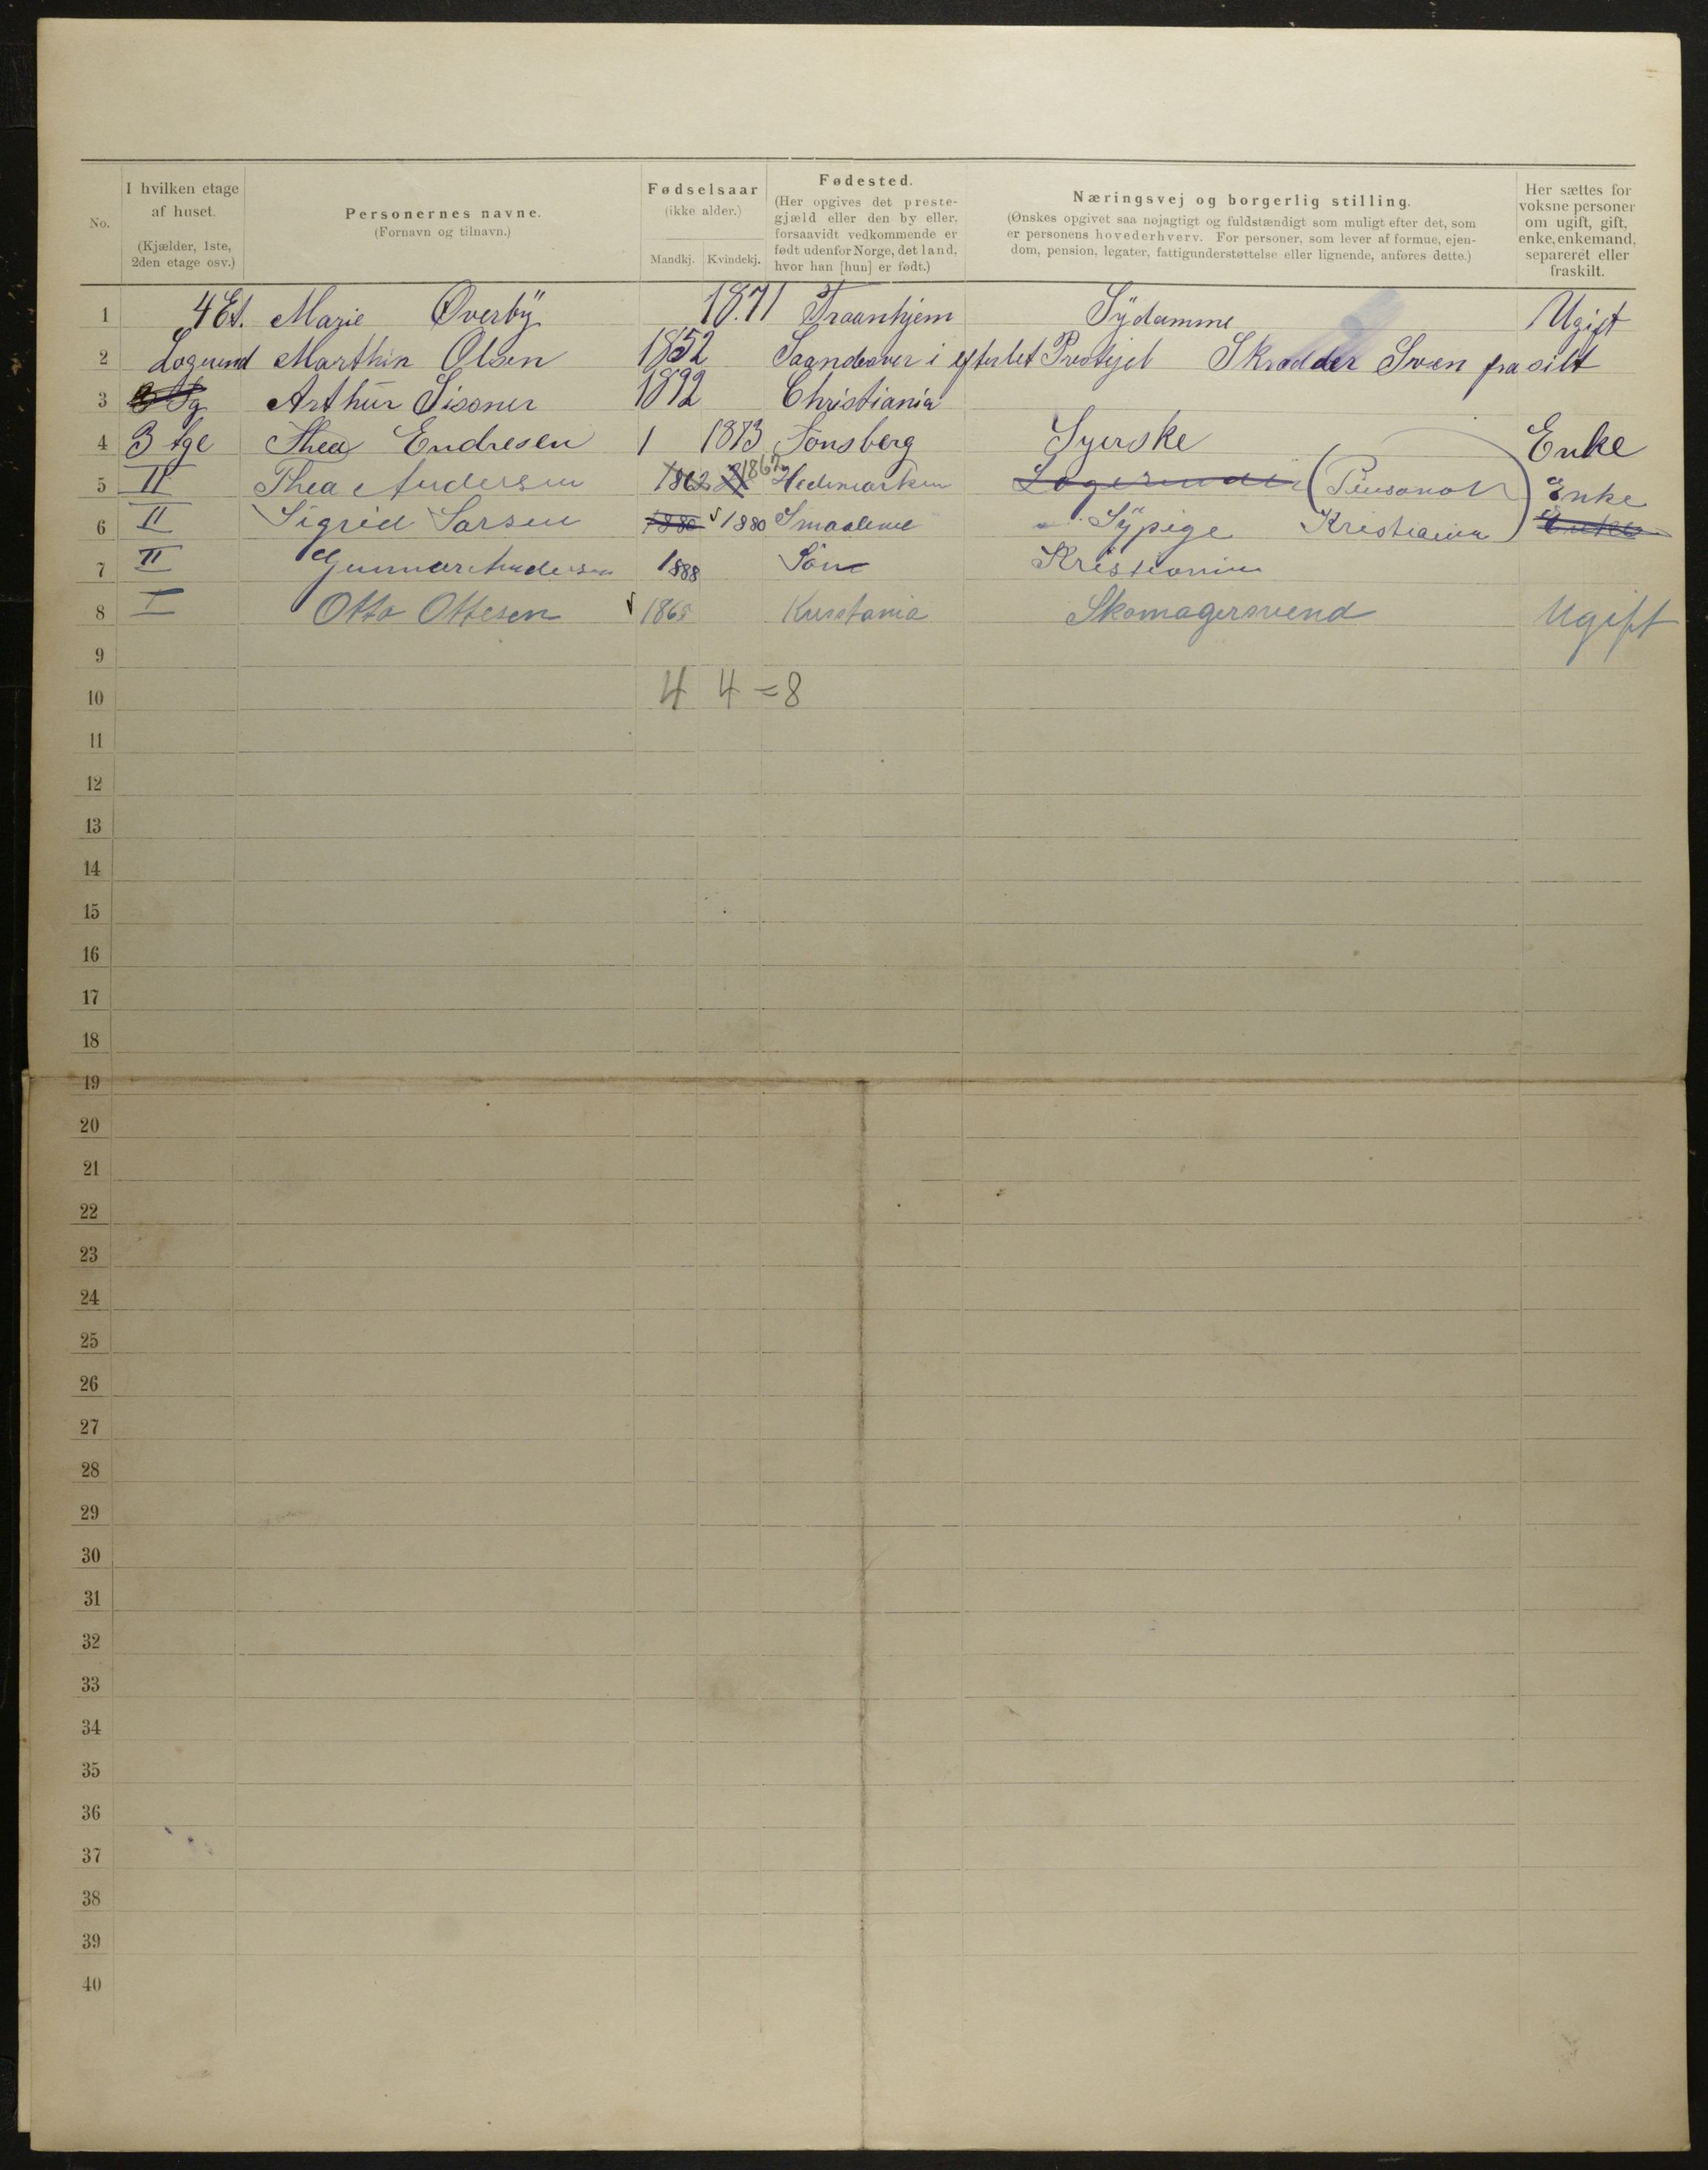 No. I hvilken etage af huset. (Kjælder, 1ste, 2den etage osv.) Personernes navne. (Fornavn og tilnavn.) Fødselsaar (ikke alder.) Mandkj. Kvindekj. Fødested. (Her opgives det prestegjæld eller den by eller, forsaavidt vedkommende er født udenfor Norge, det land, hvor han [hun] er født.) Næringsvej og borgerlig stilling. (Ønskes opgivet saa nøjagtigt og fuldstændigt som muligt efter det, som er personens hovederhverv. For personer, som lever af formue, ejendom, pension, legater, fattigunderstøttelse eller lignende, anføres dette.) Her sættes for voksne personer om ugift, gift, enke, enkemand, separeret eller fraskilt.
1 4 Et. Marie Øverbÿ 1871 Sÿdamme Ugift
2 Logerend Marthin Olsen 1852 i Skrædder Sven frasilt
3 Arthur 1892 Christiania
4 3 tge Thea Endresen 1 1873 Tonsberg Syerske Enke
5 II Thea Andersen 1862 1867 Hedemarken Logerende (Pensonat) Enke
6 II Sigrid Larsen 1880 1880 Smaalene Sÿpige Kristiania Enke
7 II Gunnar Andersen 1888 Søn Kristiania
8 I Otto Ottesen 1865 Kristania Skomagersvend Ugift
9
10 4 4 = 8
11
12
13
14
15
16
17
18
19
20
21
22
23
24
25
26
27
28
29
30
31
32
33
34
35
36
37
38
39
40